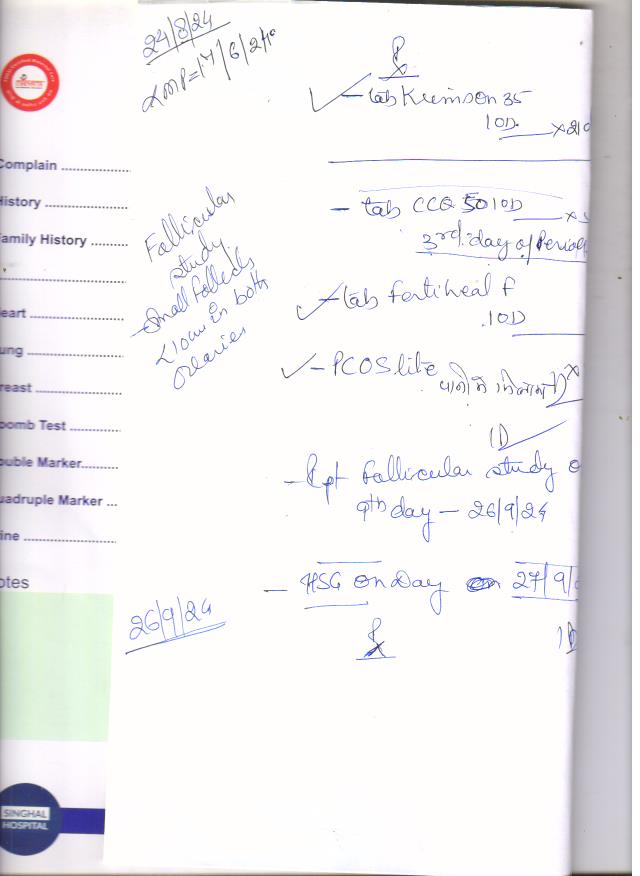 24/8/24
LMP=17/6/24
Rx
- tab Krimson 35
1OD. ×21
Complain ....................
History ....................
- tab CCQ 50 1OD
amily History ..........
3rd day of Period
Follicular
study
Small follicles
<10mm in both
ovaries
- tab fertiheal f
1OD
eart ....................
ung ....................
- PCOS lite
पानी में
reast ....................
1D
oomb Test ..............
ouble Marker..........
- Rpt follicular study o
uadruple Marker ...
9th day - 26/9/24
ine ....................
- HSG on Day on 27/9/
otes
26/9/24
Rx
1D
SINGHAL
HOSPITAL